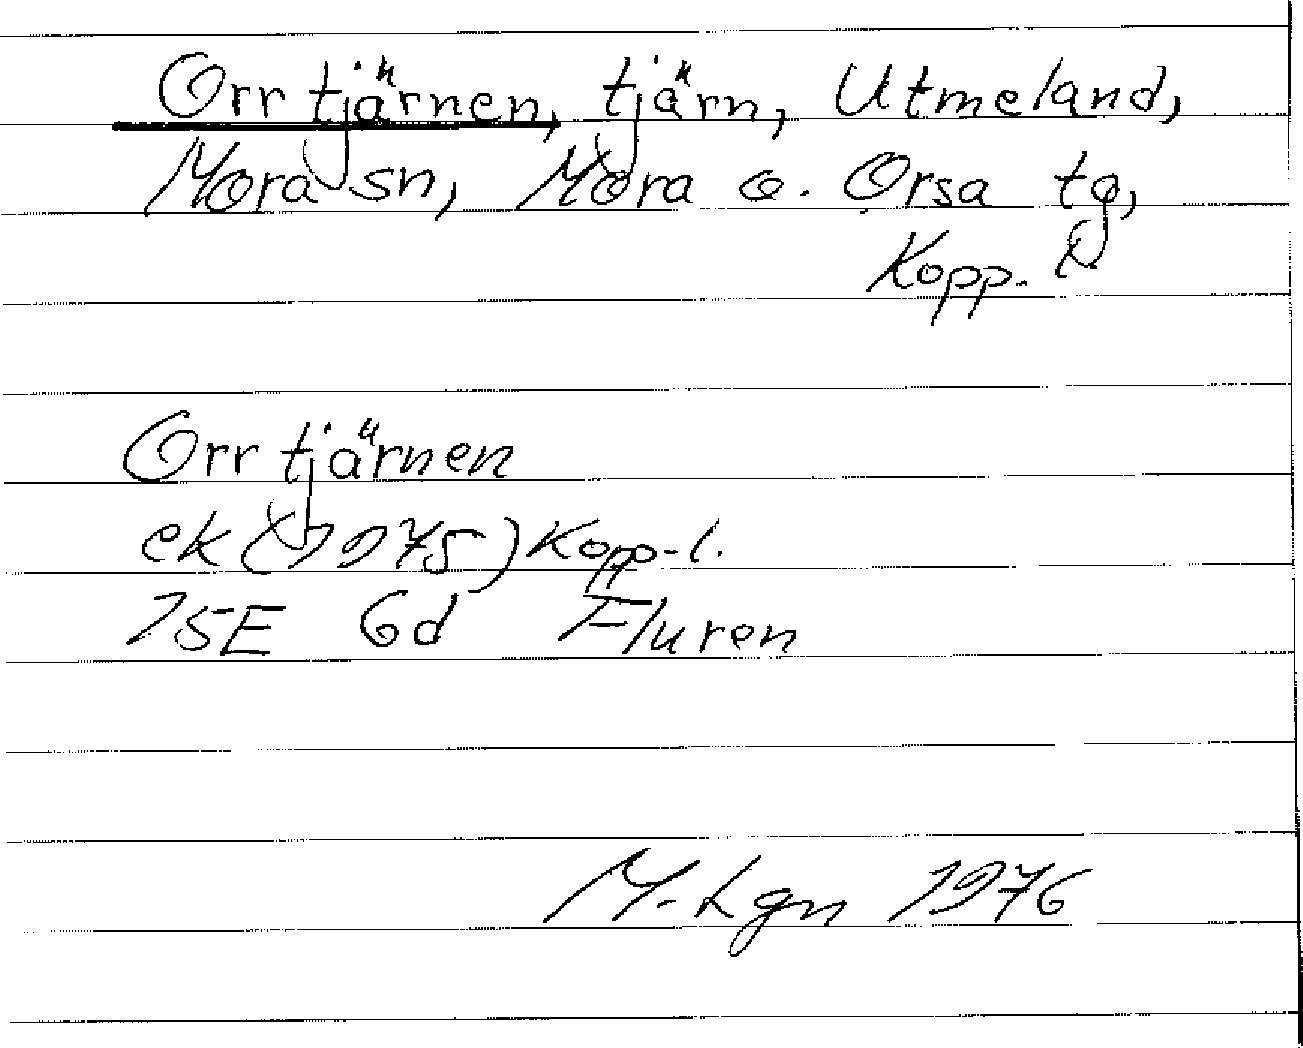 Orrtjärnen, tjärn, Utmeland,
Mora sn, Mora o. Orsa tg,
Kopp. l.
Orrtjärnen
ek (1975) Kopp-l.
15E 6d Fluren
M. Lgn 1976